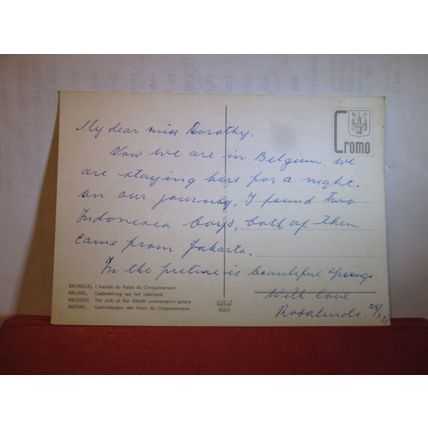 My dear miss Dorothy.
Now we are in Belgium, we
are staying here for a night.
on our journey, I found two
Indonesia boys, both of them
came from Jakarta.
In the picture is beautiful springs
With love
Rosalinde.
Cromo
BRUXELLES, L'Arcade du Palais du Cinquantenaire
BRUSSEL, Gedenkboog van het Jubelpark
BRUSSELS, The arch of the fiftieth anniversary's palace
BRÜSSEL,